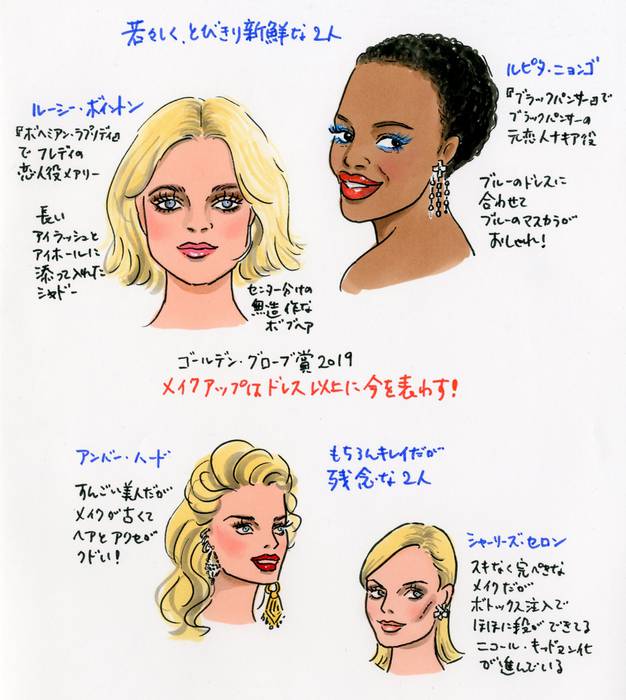 若々しく、とびきり新鮮な2人
ルーシー・ボイントン
『ボヘミアン・ラプソディ』
で フレディの
恋人役メアリー
長い
アイラッシュと
アイホールに
添って入れた
シャドー
センター分けの
無造作な
ボブヘア
ルピタ・ニョンゴ
『ブラックパンサー』で
ブラックパンサーの
元恋人ナキア役
ブルーのドレスに
合わせて
ブルーのマスカラが
おしゃれ!
ゴールデン・グローブ賞2019
メイクアップはドレス以上に今を表わす!
アンバー・ハード
すんごい美人だが
メイクが古くて
ヘアとアクセが
クドい!
もちろんキレイだが
残念な2人
シャーリーズ・セロン
スキなく完ぺきな
メイクだが
ボトックス注入で
ほほに段ができてる
ニコール・キッドマン化
が進んでいる